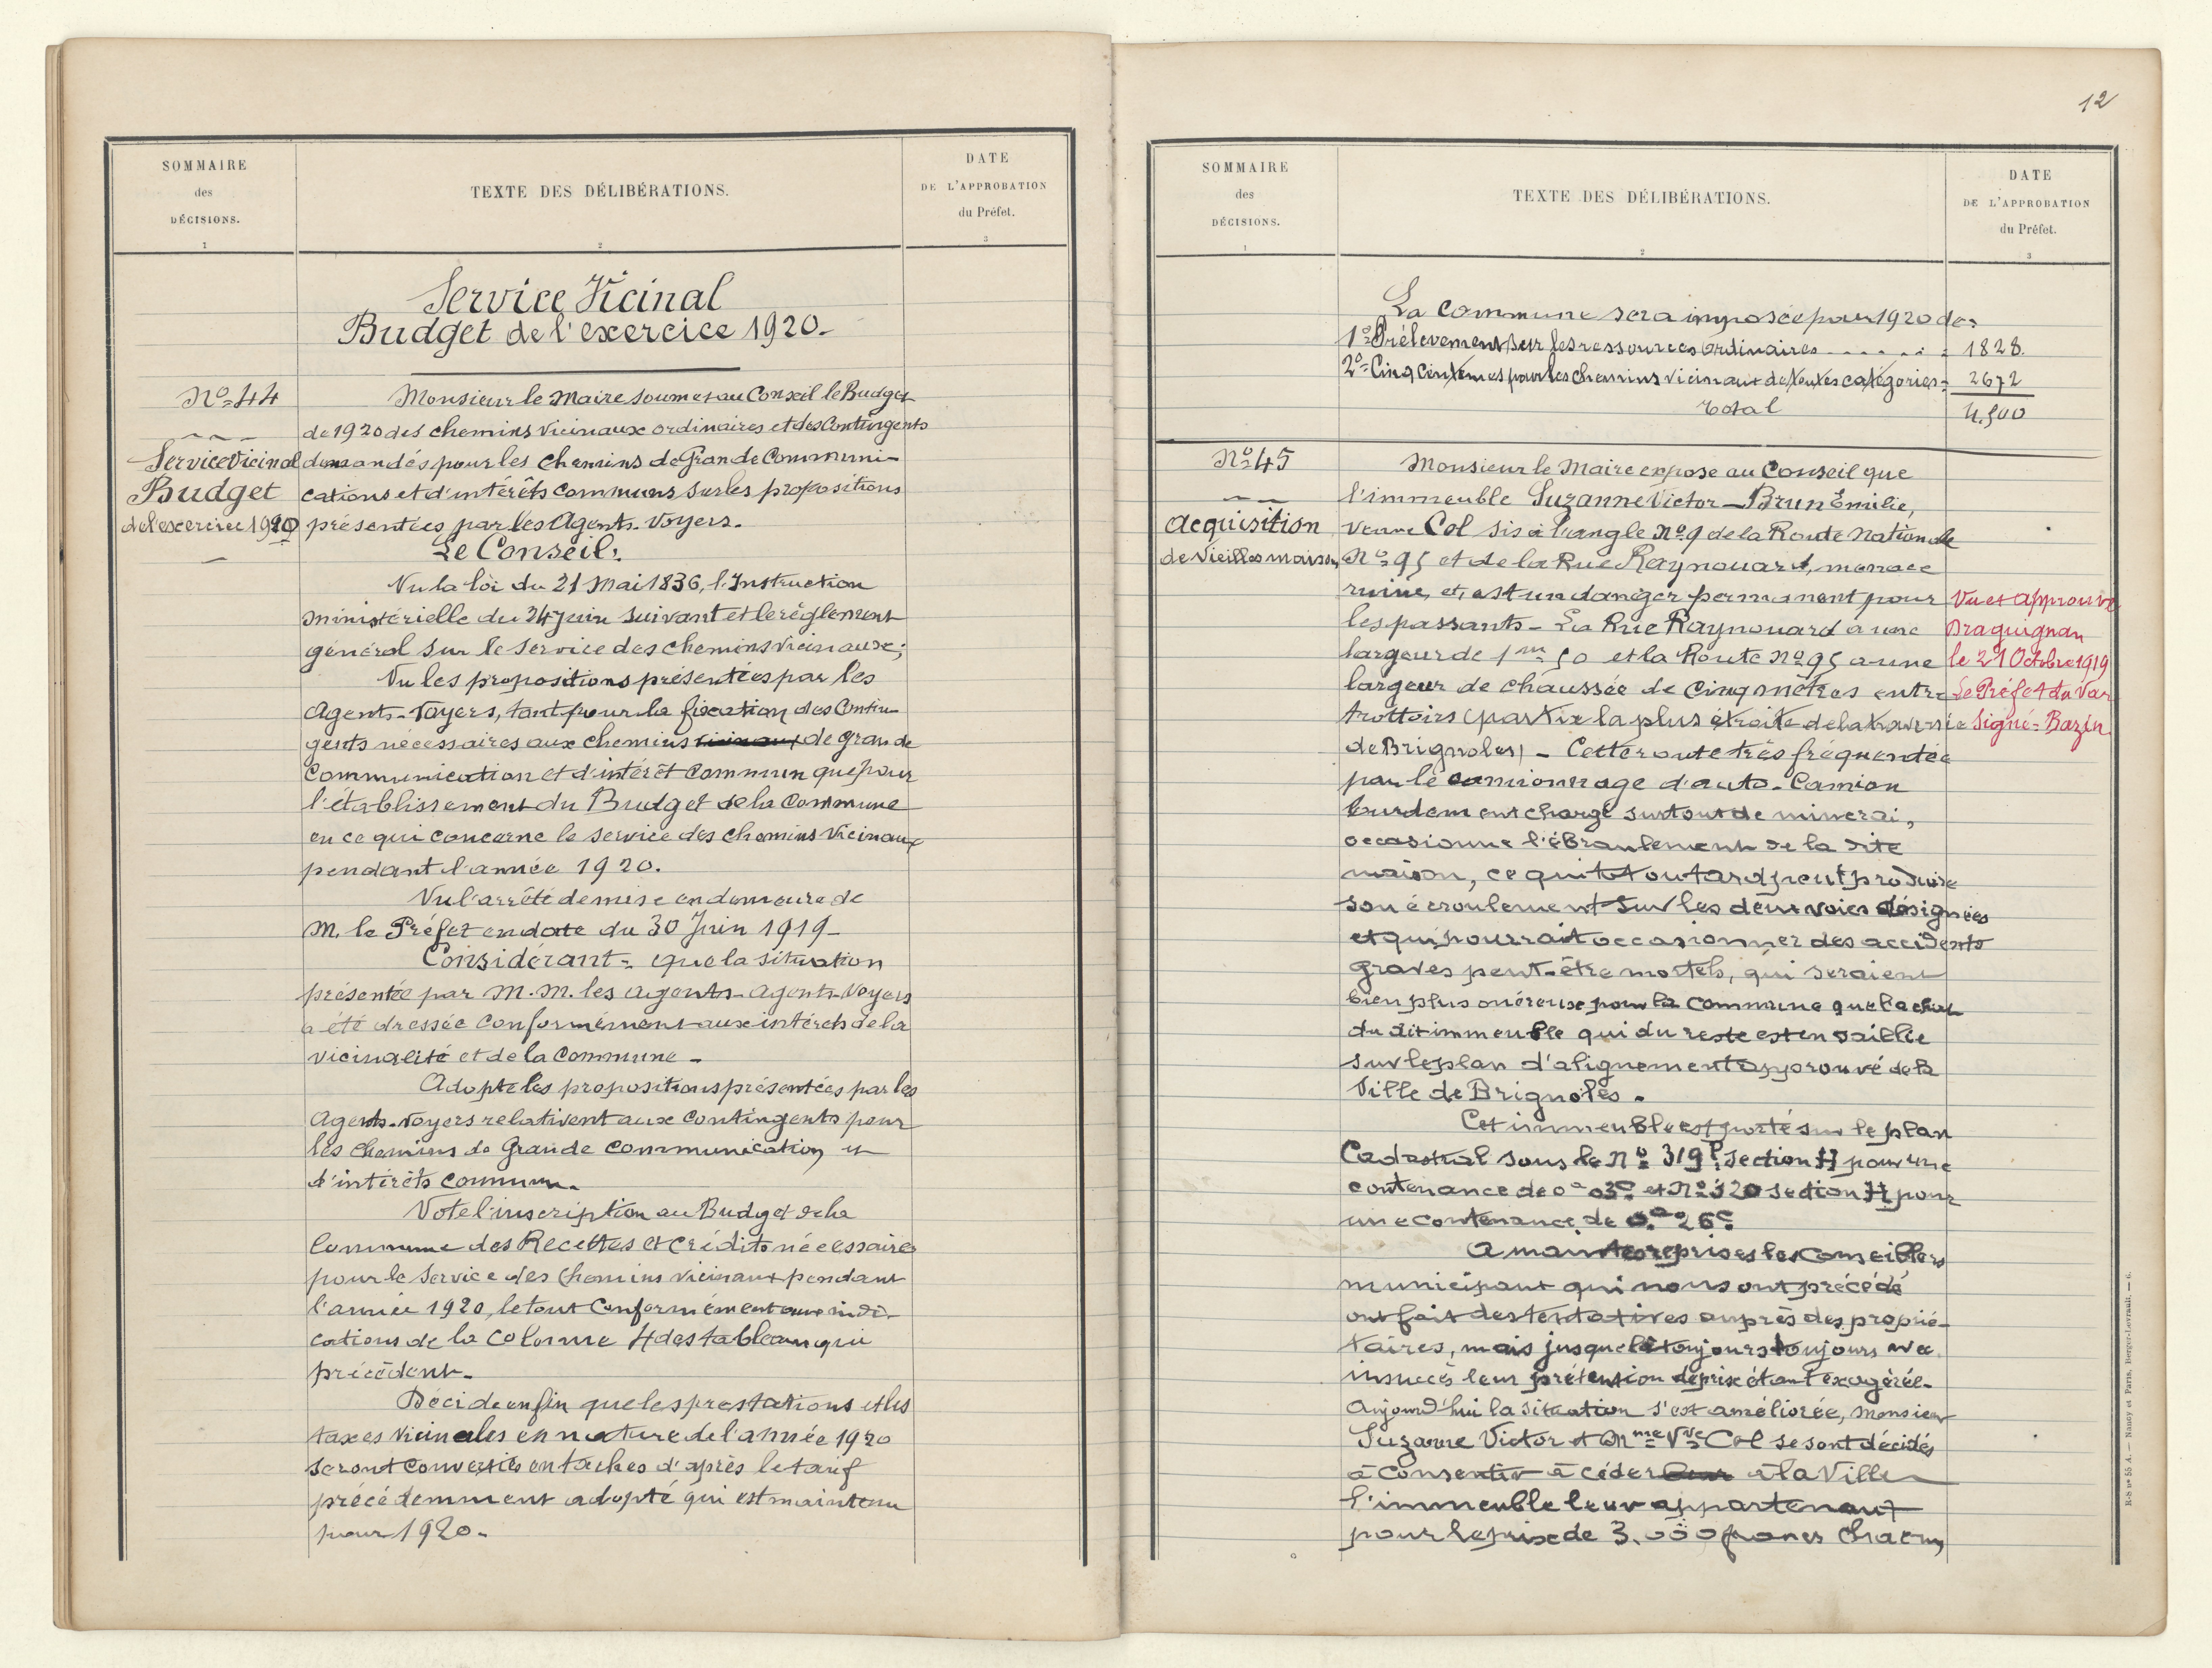 SOMMAIRE
des
DÉCISIONS.
1
TEXTE DES DÉLIBÉRATIONS.
2
DATE
DE L'APPROBATION
du Préfet.
3
Service Vicinal
Budget de l'exercice 1920.-
Nº=44
Service Vicinal
Budget
de l'exercice 1920
Monsieur le Maire soumet au Conseil le Budget
de 1920 des chemins vicinaux ordinaires et des Contingents
demandés pour les chemins de Grande Communi-
cations et d'intérêts communs sur les propositions
présentées par les Agents-Voyers.
Le Conseil:
Vu la loi du 21 Mai 1836, l'Instruction
ministérielle du 24 Juin suivant et le règlement
général sur le service des chemins vicinaux;
Vu les propositions présentées par les
Agents-Voyers, tant pour la fixation des Contin-
gents nécessaires aux chemins vicinaux de grande
communication et d'intérêt commun que pour
l'établissement du Budget de la Commune
en ce qui concerne le service des chemins vicinaux
pendant l'année 1920.
Vu l'arrêté de mise en demeure de
M. le Préfet en date du 30 Juin 1919-
Considérant= que la situation
présentée par M.M. les agents-Agents-Voyers
a été dressée conformément aux intérêts de la
vicinalité et de la Commune-
Adopte les propositions présentées par les
Agents-Voyers relativent aux contingents pour
les chemins de Grande communication et
d'intérêts commun.
Vote l'inscription au Budget de la
Commune des Recettes et Crédits nécessaires
pour le service des Chemins vicinaux pendant
l'année 1920, le tout Conformément aux indi-
cations de la colonne 4 des tableaux qui
précèdent-
Décide enfin que les prestations et les
taxes vicinales en nature de l'année 1920
seront converties en taches d'après le tarif
précédemment adopté qui est maintenu
pour 1920-
12
SOMMAIRE
des
DÉCISIONS.
1
TEXTE DES DÉLIBÉRATIONS.
2
DATE
DE L'APPROBATION
du Préfet.
3
La Commune sera imposée pour 1920 de=
1º=Prélevement sur les ressources ordinaires - - - - - = 1828.
2º=Cinq Centimes pour les chemins vicinaux de toutes catégories= 2672
Total 4.500
Nº=45
Acquisition
de Vieilles maison
Monsieur le Maire expose au Conseil que
l'immeuble Suzanne Victor-Brun Emilie,
veuve Col sis à l'angle Nº9 de la Route Nationale
Nº=95 et de la Rue Raynouard, menace
ruine, et, est un danger permanent pour
les passants- La Rue Raynouard a une
largeur de 1m 50 et la Route Nº95 a une
largeur de chaussée de cinq mètres entre
trottoirs (partie la plus étroite de la traversée
de Brignoles) - Cette route très fréquentée
par le camionnage d'auto-Camion
lourdement chargé surtout de minerai,
occasionne l'ébranlement de la dite
maison, ce qui tot ou tard peut produire
son écroulement sur les deux voies désignées
et qui pourrait occasionner des accidents
graves peut-être mortels, qui seraient
bien plus onéreuse pour la commune que l'achat
du dit immeuble qui du reste est en saillie
sur le plan d'alignement approuvé de la
Ville de Brignoles.
Cet immeuble est porté sur le plan
Cadastral sous le Nº 319P. section H pour une
contenance de 0a 03c et Nº 320 section H pour
une contenance de 0a 26c
A maintes reprises les conseillers
municipaux qui nous ont précédé
ont fait des tentatives auprès des proprié-
taires, mais jusque là toujours toujours avec
insuccès leur prétention de prix étant exagérée-
Aujourd'hui la situation s'est améliorée, Monsieur
Suzanne Victor et Mme Vve Col se sont décidés
à consentir à céder leur à la Ville
l'immeuble leur appartenant
pour le prix de 3.000 francs Chacun,
Vu et approuvé
Draguignan
le 21 Octobre 1919
Le Préfet du Var
Signé=Bazin
R-S nº 55 A. — Nancy et Paris, Berger-Levrault. — 6.